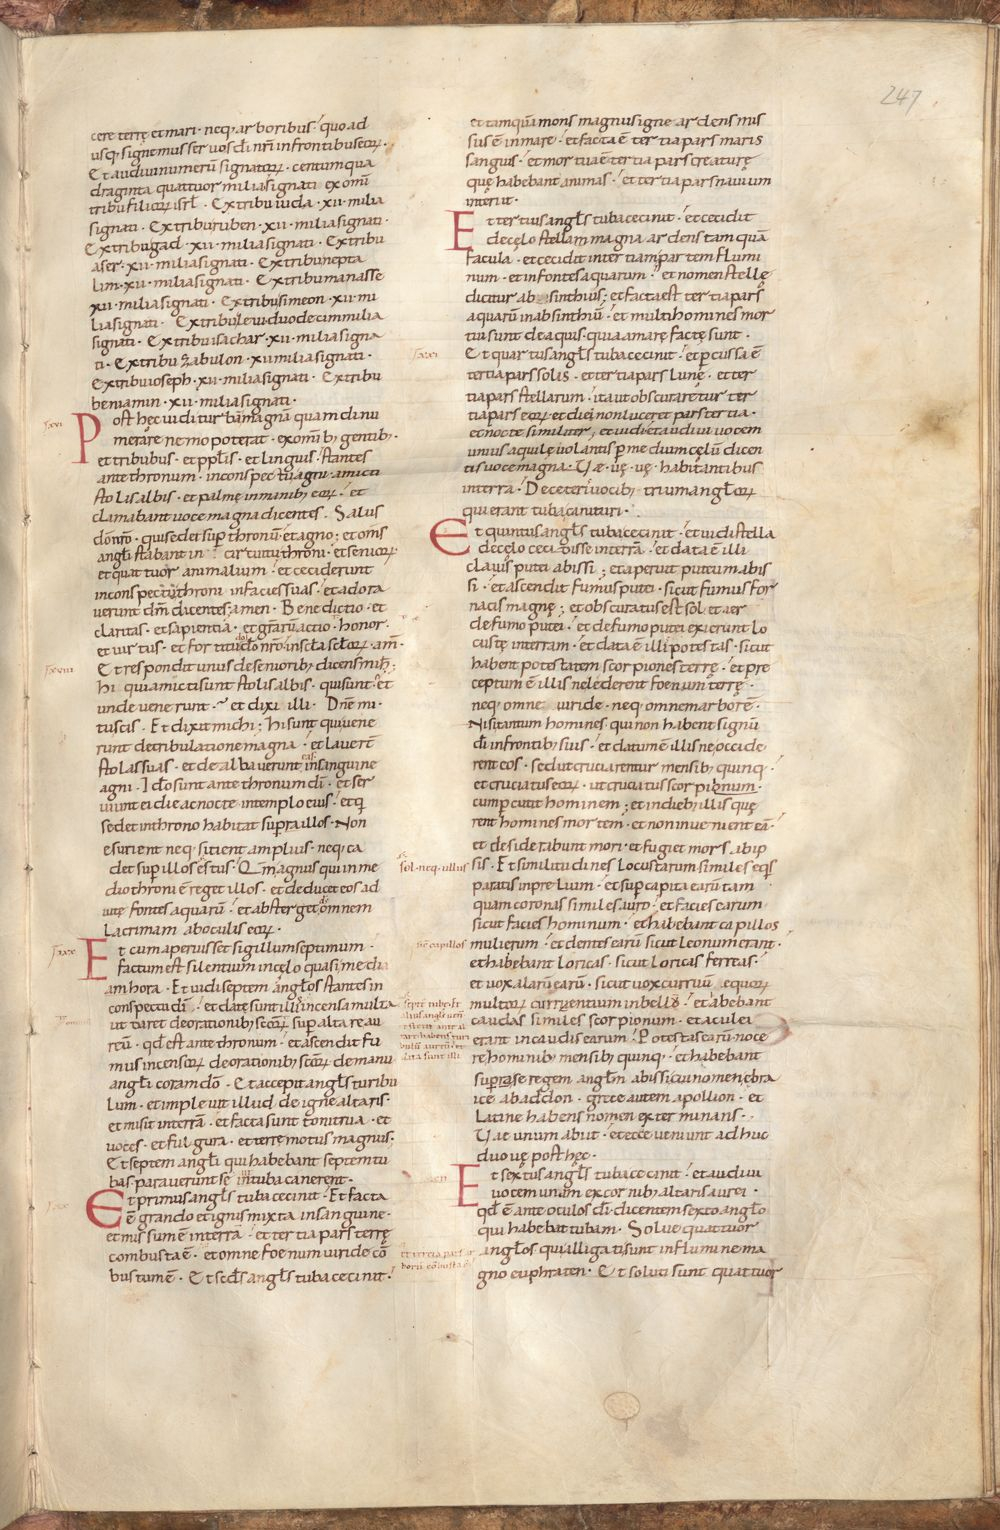 247
cere terrę et mari · neq; arboribus · quo ad
usq; signemus seruos dī nr̄i in frontibus eoꝝ ·
Et audiui numerū signatoꝝ · centum qua
draginta quattuor milia signati · ex omī
tribu filioꝝ isrł · Ex tribu iuda · xii · milia
signati · Ex tribu ruben · xii · milia signati ·
Ex tribu gad · xii · milia signati · Ex tribu
aser · xii · milia signati · Ex tribu nepta
lim · xii · milia signati · Ex tribu manasse
xii · milia signati · Ex tribu simeon · xii · mi
lia signati · Ex tribu leui duodecim milia
signati · Ex tribu isachar · xii · milia signa
ti · Ex tribu zabulon · xii milia signati ·
Ex tribu ioseph · xii · milia signati · Ex tribu
beniamin · xii · milia signati ·
Post hęc uidi turbā magnā quam dinu
merare nemo poterat · ex omnib; gentib; ·
et tribubus · et ppłis · et linguis · stantes
ante thronum · in conspectu agni · amicti
stolis albis · et palmę in manib; eoꝝ · et
clamabant uoce magna dicentes · Salus
dō nr̄o · qui sedet sup thronū · et agno ; et om̄s
angłi stabant in circuitu throni · et senioꝝ
et quattuor animalium · et ceciderunt
in conspectu throni in facies suas · et adora
uerunt dm̄ dicentes ; amen · Benedictio · et
claritas · et sapientia · et gr̄arū actio · honor ·
et uirtus · et fortitudo dō nr̄o in scła scłoꝝ · am̄ ·
Et respondit unus de seniorib; dicens mihi ;
hi qui amicti sunt stolis albis · qui sunt · et
unde uenerunt · et dixi illi · Dn̄e mi ·
tu scis · Et dixit michi ; hi sunt qui uene
runt de tribulatione magna · et lauert̄
stolas suas · et dealbauerunt eas in sanguine
agni · Ido sunt ante thronum dī · et ser
uiunt ei die ac nocte in templo eius · et q̄
sedet in throno habitat supra illos · Non
esurient neq; sitient amplius · neq; ca
det sup illos ęstus · Qm̄ magnus qui in me
dio throni ē reget illos · et deducet eos ad
uitę fontes aquarū · et absterget om̄ omnem
lacrimam ab oculis eoꝝ ·
Et cum aperuisset sigillum septimum ·
factum est silentium in cęlo quasi media
am hora · Et uidi septem angłos stantes in
conspectu dī · et datę sunt illi incensa multa
ut daret de orationib; sc̄oꝝ sup altare au
reū · qđ est ante thronum · et ascendit fu
mus incensoꝝ de orationib; sc̄oꝝ de manu
angłi coram dō · Et accepit angłs turibu
lum · et impleuit illud de igne altaris ·
et misit in terrā · et facta sunt tonitrua · et
uoces · et fulgura · et terrę motus magnus ·
Et septem angłi qui habebant septem tu
bas parauerunt sē ut tuba canerent ·
Et primus angłs tuba cecinit · Et facta
ē grando et ignis mixta in sanguine ·
et missum ē in terrā · et tertia pars terrę
combusta ē · et omne foenum uiride cō
bustum ē · Et sc̄ds angłs tuba cecinit ·
et tamquā mons magnus igne ardens mis
sus ē in mare · et facta ē tertia pars maris
sanguis · et mortua ē tertia pars creaturę
quę habebant animas · et tertia pars nauium
interiit ·
Et tertius angłs tuba cecinit · et cecidit
de cęlo stella magna ardens tamquā
facula · et cecidit in tertiam partem flumi
num · et in fontes aquarum · et nomen stellę
dicitur absinthius ; et facta est tertia pars
aquarū in absinthiū · et multi homines mor
tui sunt de aquis · quia amarę factę sunt ·
Et quartus angłs tuba cecinit · et pcussa ē
tertia pars solis · et tertia pars lunę · et ter
tia pars stellarum · ita ut obscuraretur ter
tia pars eoꝝ · et diei non luceret pars tertia ·
et nocte similiter · et uidi et audiui uocem
unius aquilę uolantis p medium cęlū dicen
tis uoce magna · Uę · uę · uę · habitantibus
in terra · De ceteri uocib; trium angłoꝝ
qui erant tuba canituri ·
Et quintus angłs tuba cecinit · et uidi stella
de cęlo cecidisse in terrā · et data ē illi
clauis putei abissi ; et aperuit puteum abis
si · et ascendit fumus putei · sicut fumus for
nacis magnę ; et obscuratus est sol et aer
de fumo putei · et de fumo putei exierunt lo
custę in terram · et data ē illi potestas · sicut
habent potestatem scorpiones terrę · et pre
ceptum ē illis ne lederent foenum terrę ·
neq; omne uiride · neq; omnem arborē ·
Nisi tantum homines · qui non habent signū
dī in frontib; suis · et datum ē illis ne occide
rent eos · sed ut cruciarentur mensib; quinq; ·
et cruciatus eoꝝ · ut cruciatus scorpignum ·
cum pcutit hominem ; et in dieb; illis quę
rent homines mortem · et non inuenient eā ·
et desiderabunt mori · et fugiet mors ab ip
sis · Et similitudines locustarum similes eq̄s
paratis in prelium · et sup capita earū tam
quam coronas similes auro · et facies earum
sicut facies hominum · et habebant capillos
mulierum · et dentes earū sicut leonum erant ·
et habebant loricas · sicut loricas ferreas ·
et uox alarū earū · sicut uox curruū equoꝝ
multoꝝ currentium in bellū · et abebant
caudas similes scorpionum · et aculei
erant in caudis earum · Potestas earū noce
re hominib; mensib; quinq; · et habebant
suprase regem angłm abissi cui nomen ebra
ice abaddon · grece autem apollion · et
latine habens nomen exterminans ·
Uae unum abiit · et ecce ueniunt adhuc
duo uę post hęc ·
Et sextus angłs tuba cecinit · et audiui
uocem unam ex cornib; altaris aurei ·
qđ ē ante oculos dī · dicentem sexto angło
qui habebat tubam · Solue quattuor
angłos qui alligati sunt in flumine ma
gno euphraten · Et soluti sunt quattuor
sol · neq; ullus
sic capillos